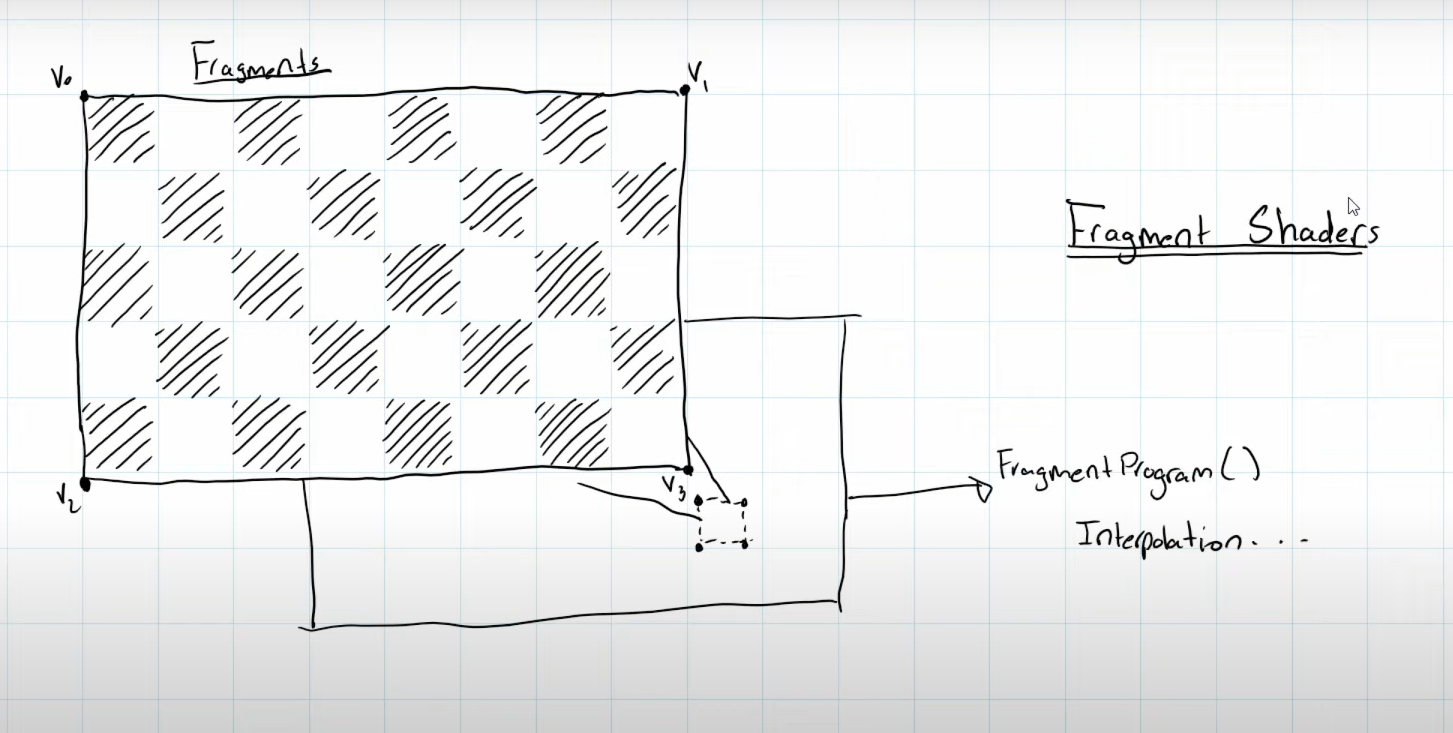 Fragments
V₀
V₁
Fragment Shaders
V₂
V₃
FragmentProgram()
Interpolation...